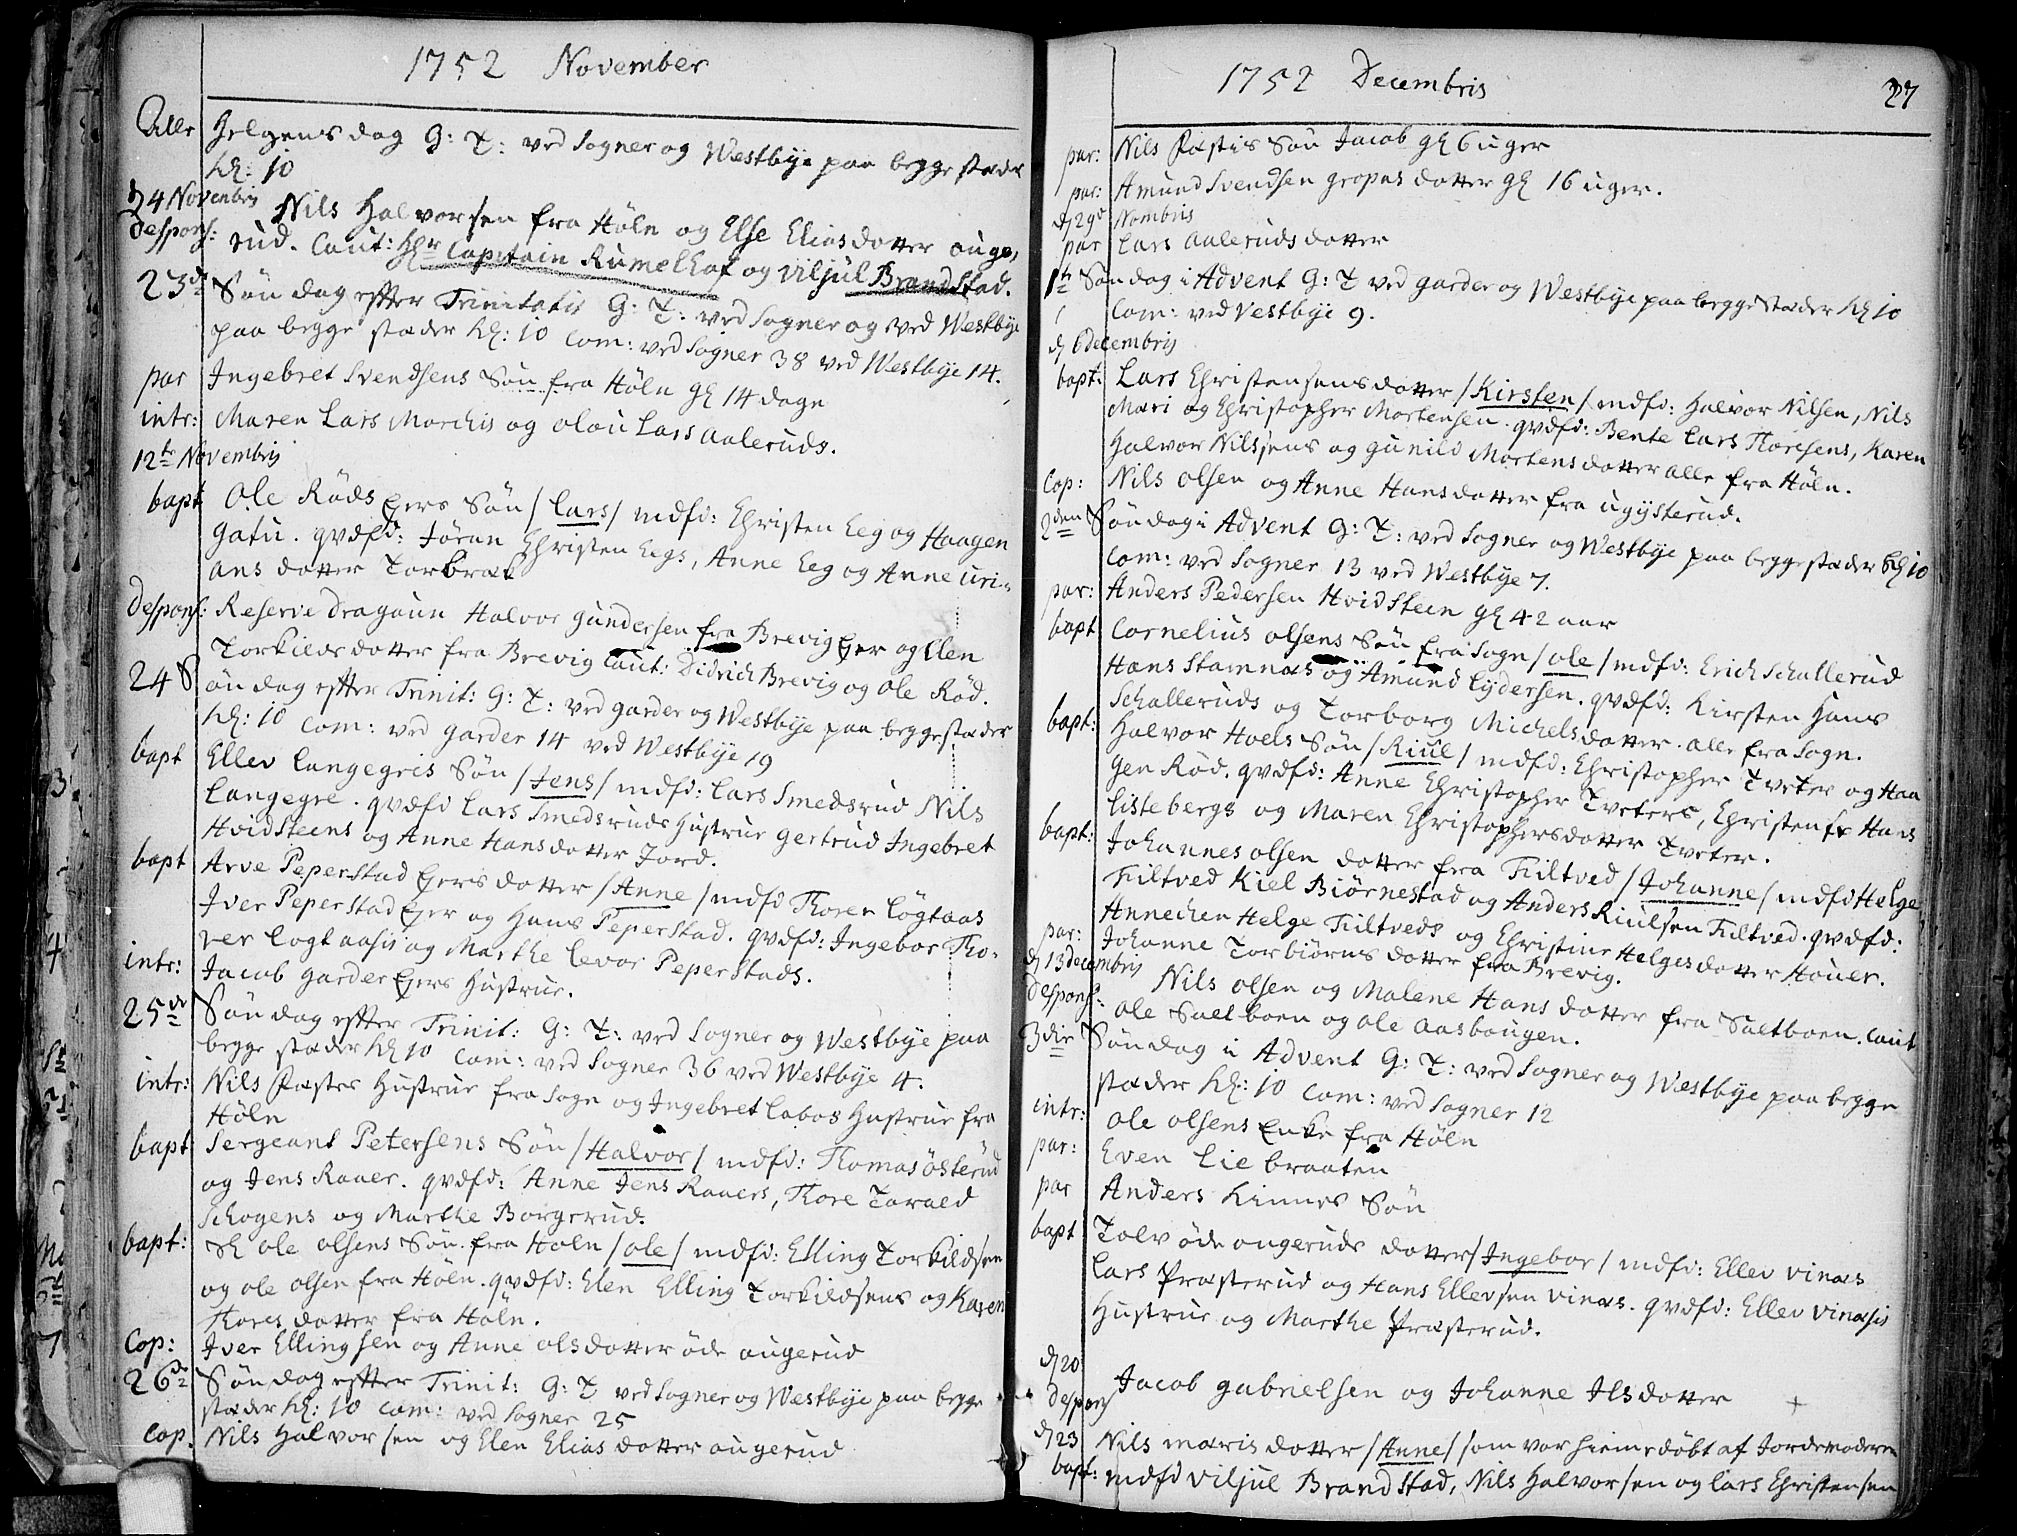 1752 November
Alle Helgens dag G: T: ved Sogner og Westbye paa begge stæder
kl: 10
d 4 Novembris
despons: Nils Halvorsen fra Höln og Else Eliasdotter auge,
rud. Caut: Hr Capitain Rumelhof og Viljul Brandstad.
23de Söndag effter Trinitatis G: T: ved Sogner og ved Westbye
paa begge stæder kl: 10 Com: ved Sogner 38 ved Westbye 14.
par Ingebret Svendsens Sön fra Höln gl 14 dage
intr: Maren Lars Morchis og Olou Lars Aaleruds.
12te Novembris
bapt Ole Röds Ejers Sön /Lars/ mdfd: Christen Eeg og Haagen
Gatu. qvdfd: Jöran Christen Eegs, Anne Eeg og Anne Uri-
ans dotter Torbræk
despons: Reserve dragoun Halvor Gundersen fra Brevig Ejer og Elen
Torkildsdotter fra Brevig Caut: Didrich Brevig og Ole Röd.
24 Söndag effter Trinit: G: T: ved Garder og Westbye paa begge stæder
kl: 10 Com: ved Garder 14 ved Westbye 19
bapt Ellev Langegris Sön /Jens/ mdfd: Lars Smedsrud Nils
Langegre. qvdfd Lars Smedsruds Hustrue Gertrud Ingebret
Hvidsteens og Anne Hansdotter Jord.
bapt Arve Peperstad Ejers dotter /Anne/ mdfd Thorer Lögtaas
Iver Peperstad Ejer og Hans Peperstad. qvdfd: Ingebor Tho-
rer Logtaasis og Marthe Levor Peperstads.
intr: Jacob Garder Ejers Hustrue.
25de Söndag effter Trinit: G: T: ved Sogner og Westbye paa
begge stæder kl 10 Com: ved Sogner 36 ved Westbye 4.
intr: Nils Præstes Hustrue fra Sogn og Ingebret Labos Hustrue fra
Höln
bapt Sergeant Petersens Sön /Halvor/ mdfd: Thomas Österud
og Jens Rauer. qvdfd: Anne Jens Rauers, Thore Tarald
Schogens og Marthe Borgerud.
bapt: Ole Olsens Sön fra Holn /Ole/ mdfd: Elling Torkildsen
og Ole Olsen fra Höln. qvdfd: Elen Elling Torkildsens og Karen
Thores dotter fra Höln.
Cop: Iver Ellingsen og Anne Olsdotter Öde augerud
26de Söndag effter Trinit: G: T ved Sogner og Westbye paa begge
stæder kl: 10 Com: ved Sogner 25
Cop. Nils Halvorsen og Elen Elias dotter augerud
1752 Decembris
27
par: Nils Præstis Sön Jacob gl 6 uger
par: Amund Svendsen Gropas dotter gl 16 uger.
d 29de Nombris
par Lars Aaleruds dotter
1te Söndag i Advent G: T ved Garder og Westbye paa begge stæder kl 10
Com: ved Vestbye 9.
d 6 decembris
bapt: Lars Christensens dotter /Kirsten/ mdfd: Halvor Nilsen, Nils
Mæri og Christopher Mortensen. qvdfd: Bente Lars Thoresens, Karen
Halvor Nilsens og Gunild Mortens dotter alle fra Höln.
Cop: Nils Olsen og Anne Hansdotter fra Ugysterud.
2den Söndag i Advent G: T: ved Sogner og Westbye paa begge stæder kl 10
Com: ved Sogner 13 ved Westbye 7.
par: Anders Pedersen Hvidsteen gl 42 aar
bapt Cornelius Olsens Sön fra Sogn /Ole/ mdfd: Erich Schallerud
Hans Stamnæs og Amund Eydersen. qvdfd: Kirsten Hans
Schalleruds og Torborg Michelsdotter. alle fra Sogn.
bapt: Halvor Hoels Sön /Riul/ mdfd: Christopher Tveter og Haa
gen Röd. qvdfd: Anne Christopher Tveters, Christen Hans
Listebergs og Maren Christophersdotter Tveter.
bapt: Johannes Olsen dotter fra Tiltved /Johanne/ mdfd Helge
Tiltved Kiel Biörnestad og Anders Riulsen Tiltved. qvdfd:
Annechen Helge Tiltveds og Christine Helgesdotter Houer.
par: Johanne Torbiörns dotter fra Brevig.
d 13 decembris
despons: Nils Olsen og Malene Hans dotter fra Saltboen. Caut
Ole Saltboen og Ole Aasbougen.
3die Söndag i Advent G: T: ved Sogner og Westbye paa begge
stæder kl: 10 Com: ved Sogner 12
intr: Ole Olsens Enke fra Höln
par: Even Lie braaten
par Anders Kinnes Sön
bapt Tolv Öde augeruds dotter /Ingebor/ mdfd: Ellev Vinæs
Lars Præsterud og Hans Ellevsen Vinæs. qvdfd: Ellev Vinæsis
Hustrue og Marthe Præsterud.
d 20
despons Jacob Gabrielsen og Johanne Ilsdotter +
d 23
bapt: Nils Mæris dotter /Anne/ som var hiemedöbt af Jordemoderen
mdfd Viljul Brandstad, Nils Halvorsen og Lars Christensen